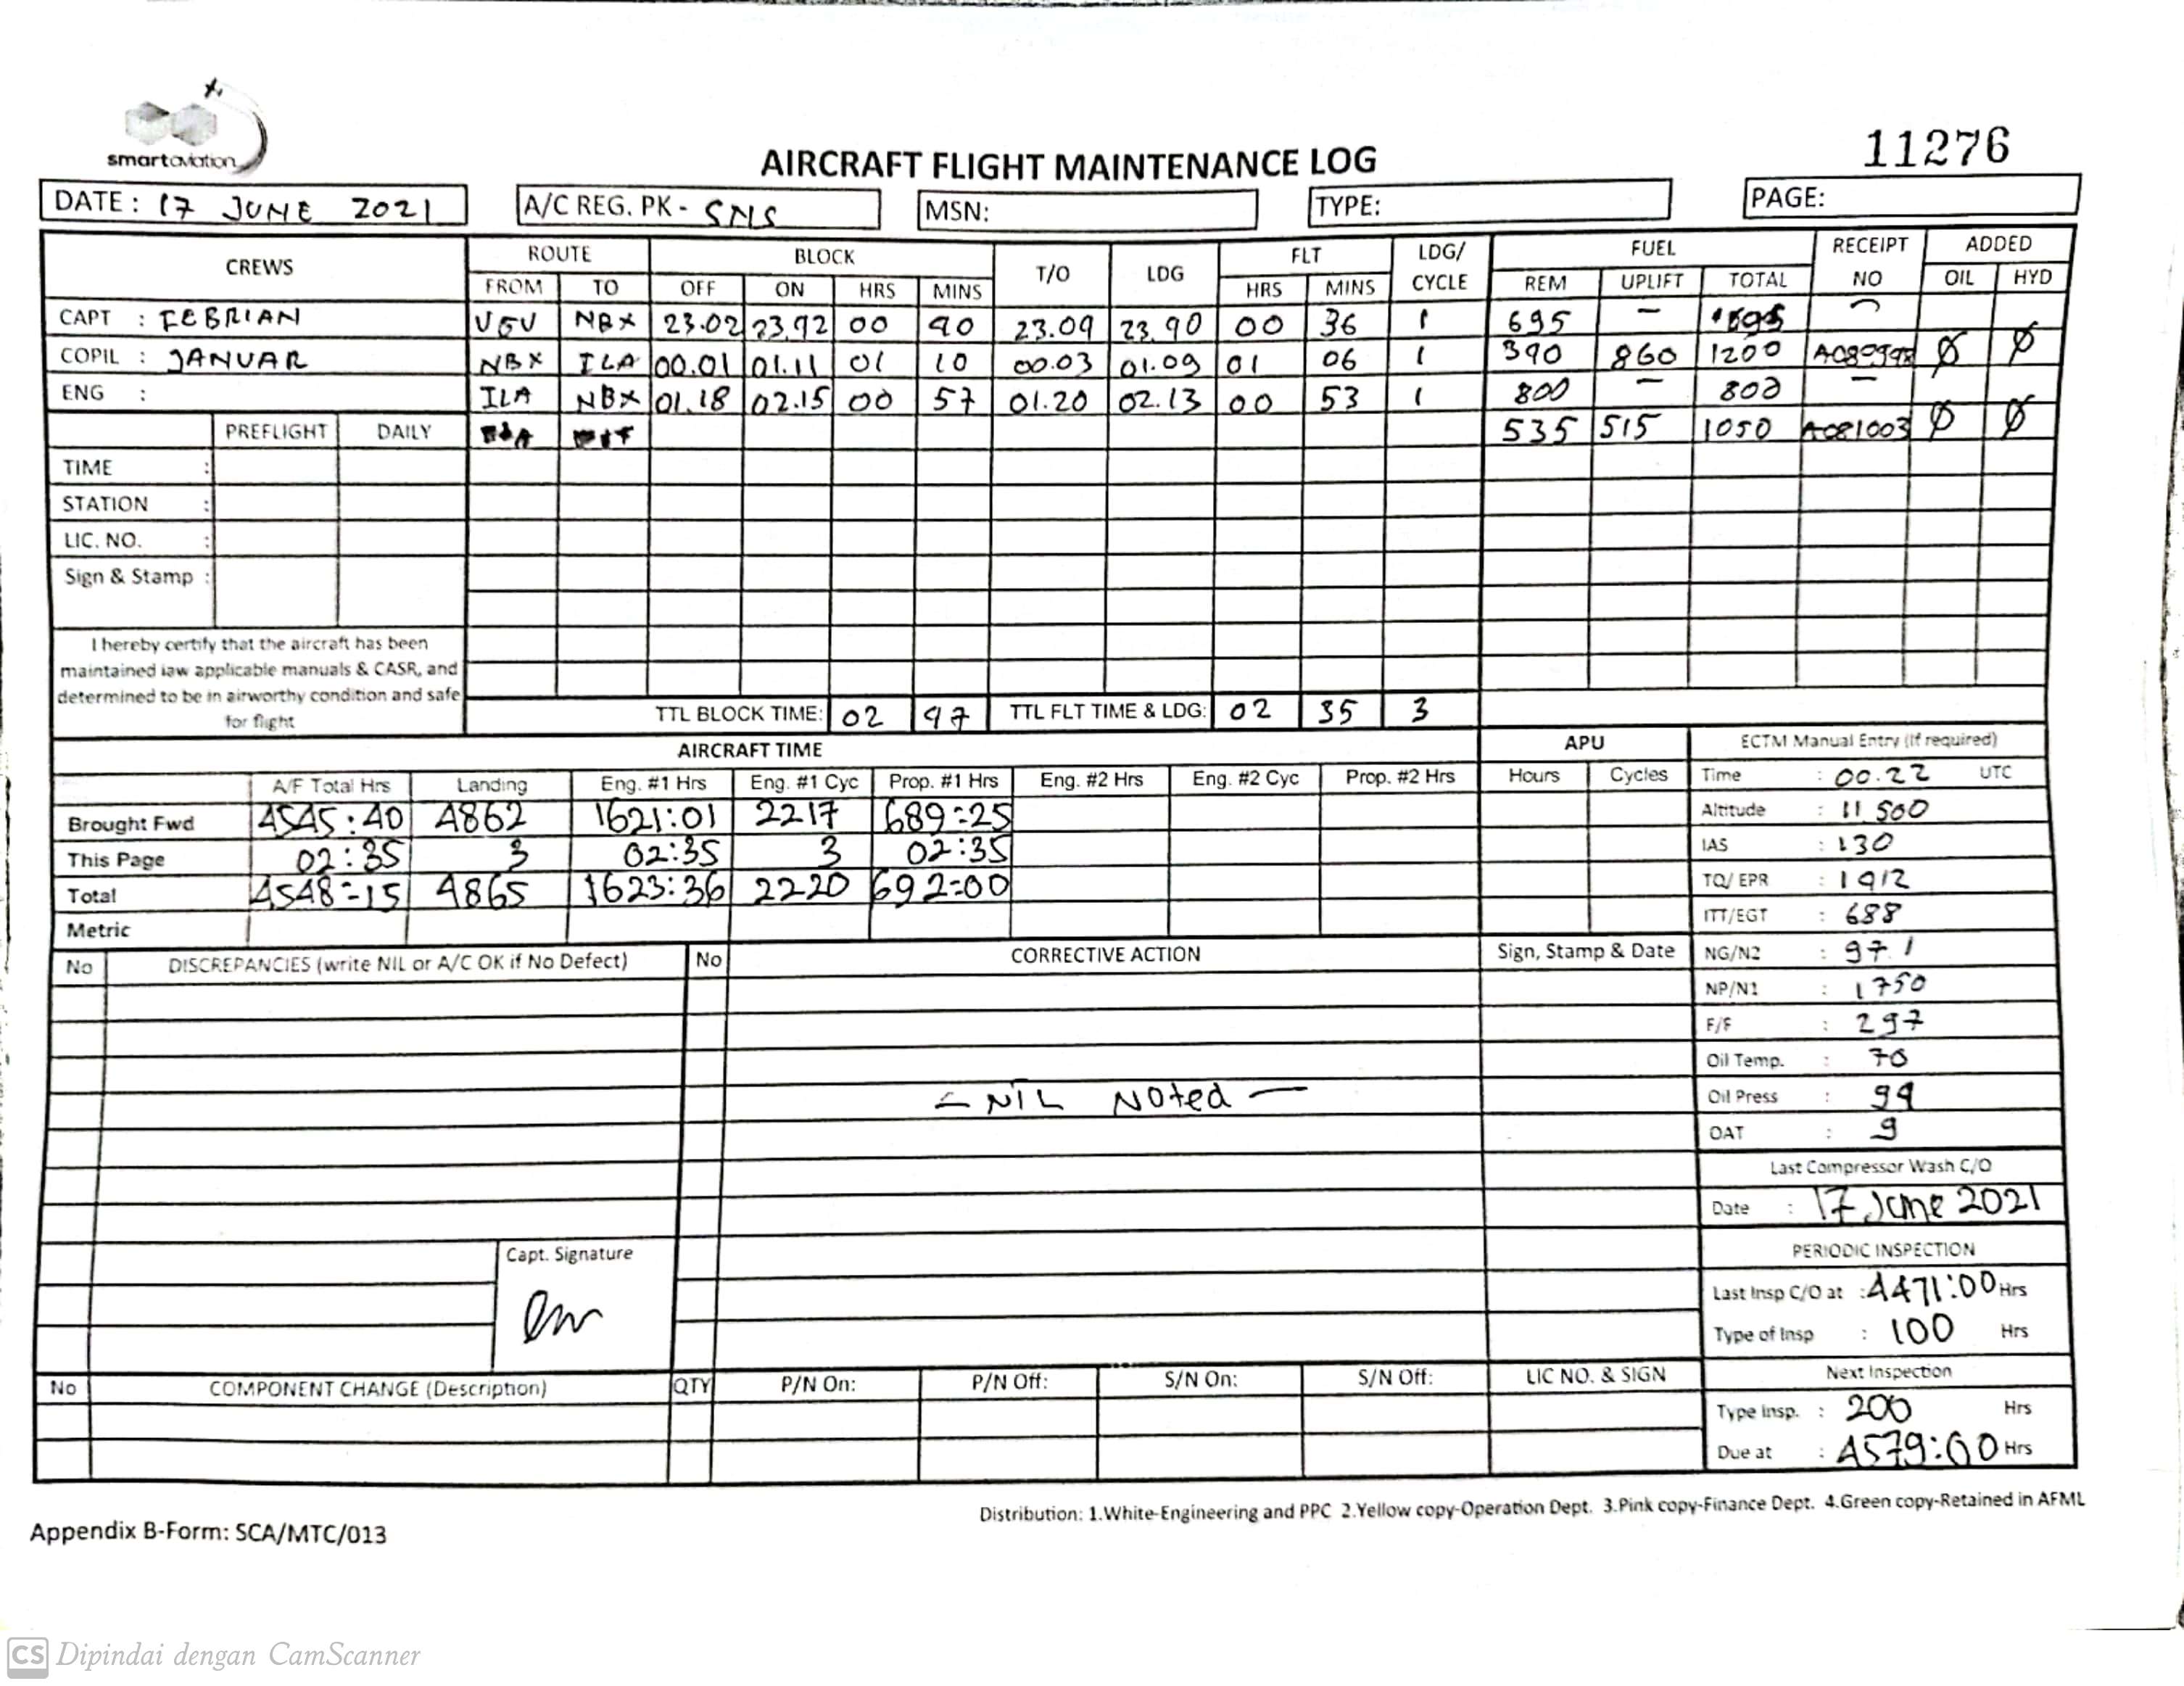 smartaviation
AIRCRAFT FLIGHT MAINTENANCE LOG
11276
DATE : 17 JUNE 2021
A/C REG. PK - SNS
MSN:
TYPE:
PAGE:
CREWS ROUTE BLOCK T/O LDG FLT LDG/ CYCLE FUEL RECEIPT NO ADDED
FROM TO OFF ON HRS MINS HRS MINS REM UPLIFT TOTAL OIL HYD
CAPT : FEBRIAN NBX 23.02 23.42 00 40 23.04 23.40 00 36 1 695 –
COPIL : JANUAR NBX ILA 00.01 01.11 01 10 00.03 01.09 01 06 1 390 860 1200 Ø Ø
ENG : ILA NBX 01.18 02.15 00 57 01.20 02.13 00 53 1 800 – 800 –
PREFLIGHT DAILY 535 515 1050 A081003 Ø Ø
TIME :
STATION :
LIC. NO. :
Sign & Stamp :
I hereby certify that the aircraft has been
maintained iaw applicable manuals & CASR, and
determined to be in airworthy condition and safe
for flight
TTL BLOCK TIME: 02 47 TTL FLT TIME & LDG: 02 35 3
AIRCRAFT TIME APU ECTM Manual Entry (If required)
A/F Total Hrs Landing Eng. #1 Hrs Eng. #1 Cyc Prop. #1 Hrs Eng. #2 Hrs Eng. #2 Cyc Prop. #2 Hrs Hours Cycles Time : 00.22 UTC
Brought Fwd 4545:40 4862 1621:01 2217 689:25 Altitude : 11.500
This Page 02:35 3 02:35 3 02:35 IAS : 130
Total 4548:15 4865 1623:36 2220 692:00 TQ/ EPR : 1412
Metric ITT/EGT : 688
No DISCREPANCIES (write NIL or A/C OK if No Defect) No CORRECTIVE ACTION Sign, Stamp & Date NG/N2 : 97.1
NP/N1 : 1750
F/F : 297
Oil Temp. : 70
– NIL Noted – Oil Press : 94
OAT : 9
Last Compressor Wash C/O
Date : 17 June 2021
Capt. Signature PERIODIC INSPECTION
Last Insp C/O at : 4471:00 Hrs
Type of Insp : 100 Hrs
No COMPONENT CHANGE (Description) QTY P/N On: P/N Off: S/N On: S/N Off: LIC NO. & SIGN Next Inspection
Type Insp. : 200 Hrs
Due at : 4579:00 Hrs
Distribution: 1.White-Engineering and PPC 2.Yellow copy-Operation Dept. 3.Pink copy-Finance Dept. 4.Green copy-Retained in AFML
Appendix B-Form: SCA/MTC/013
CS Dipindai dengan CamScanner